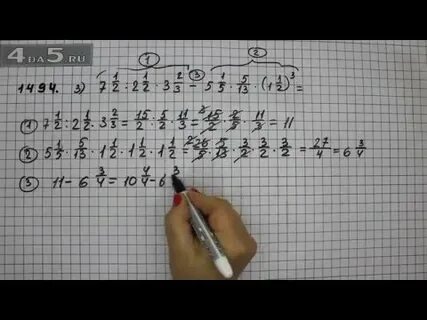 4DA5.RU
① ②
1494. 3) 7 1/2 : 2 1/2 · 3 2/3 ③ - 5 1/5 · 5/13 · (1 1/2)³ =
① 7 1/2 : 2 1/2 · 3 2/3 = 15/2 : 5/2 · 11/3 = 15/2 · 2/5 · 11/3 = 11
② 5 1/5 · 5/13 · 1 1/2 · 1 1/2 · 1 1/2 = 26/5 · 5/13 · 3/2 · 3/2 · 3/2 = 27/4 = 6 3/4
③ 11 - 6 3/4 = 10 4/4 - 6 3